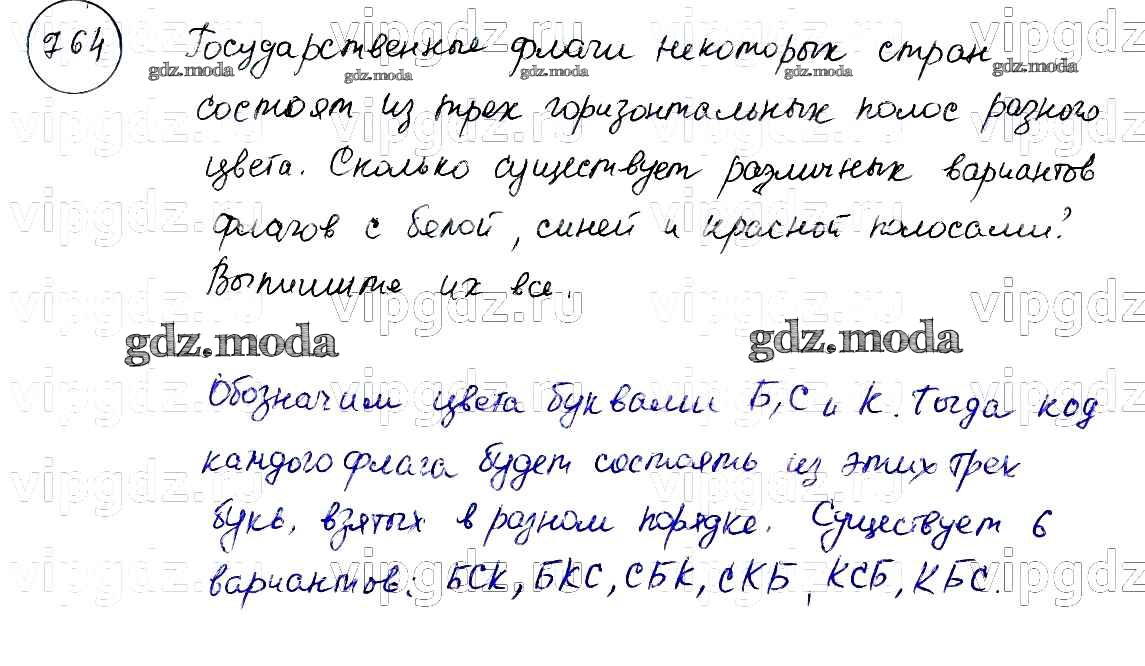 764 Государственные флаги некоторых стран
gdz.moda gdz.moda gdz.moda gdz.moda
состоят из трех горизонтальных полос разного
цвета. Сколько существует различных вариантов
флагов с белой, синей и красной полосами?
Выпишите их все.
gdz.moda gdz.moda
Обозначим цвета буквами Б, С и К. Тогда код
каждого флага будет состоять из этих трех
букв, взятых в разном порядке. Существует 6
вариантов: БСК, БКС, СБК, СКБ, КСБ, КБС.
vipgdz.ru vipgdz.ru vipgdz.ru